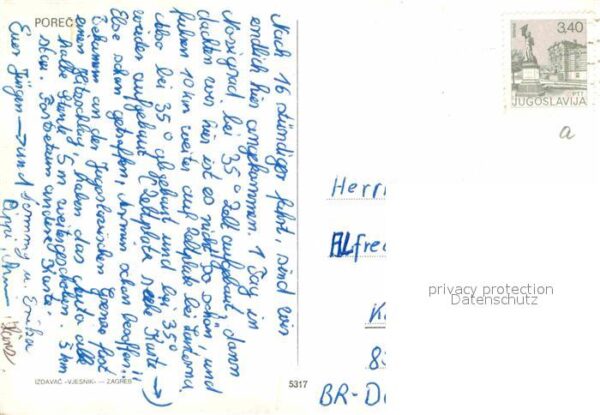 POREČ
Nach 16 stündiger Fahrt, sind wir
endlich hier angekommen. 1 Tag in
Novigrad bei 35° Zelt aufgebaut dann
dachten wir, hier ist es nicht so schön, und
fuhren 10 km weiter auf Zeltplatz bei Lanterna
also bei 35° abgebaut und bei 35°
wieder aufgebaut (Zeltplatz siehe Karte →)
schon getroffen, Armin schon besoffen!!
Bekamen an der Jugoslawischen Grenze fast
einen Hitzschlag, haben das Auto alle
halbe Stunde 5 m weitergeschoben. 5 km
Stau. Fortsetzung andere Karte.
Euer Jürgen → und Tommy u. Erika
IZDAVAČ »VJESNIK« — ZAGREB
5317
3,40
JUGOSLAVIJA
a
Herrn
Alfred
privacy protection
Datenschutz
K
8
BR-De